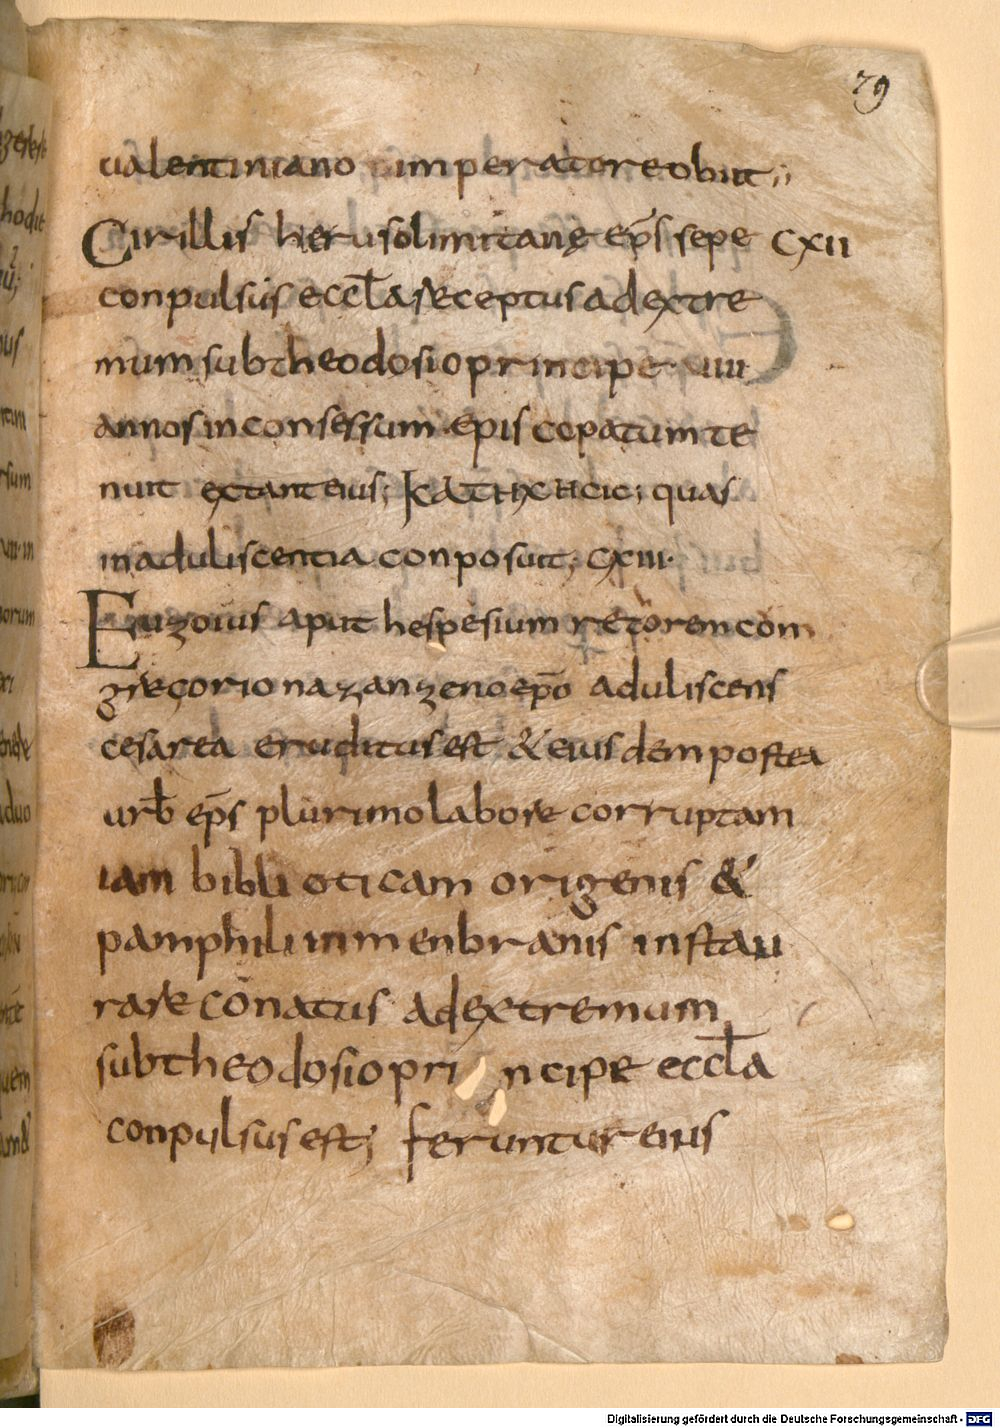 79
ualentiniano imperatore obiit;
Cirillis herusolimitanę ep̄s sepe CXII
conpulsus eccl̄a receptus ad extre
mum sub theodosio principe uiii
annos inconsessum episcopatum te
nuit extant eius; KATHXHCIC; quas
in aduliscentia conposuit; CXIII·
Euzoius aput hespesium retorem com
gregorio nazanzeno ep̄o aduliscens
cesarea eruditus est & eiusdem postea
urb̄ ep̄s plurimo labore corruptam
iam biblioticam origenis &
pamphili in menbranis instau
rare conatus ad extremum
sub theodosio principe eccl̄a
conpulsus est; feruntur eius
Digitalisierung gefördert durch die Deutsche Forschungsgemeinschaft - DFG